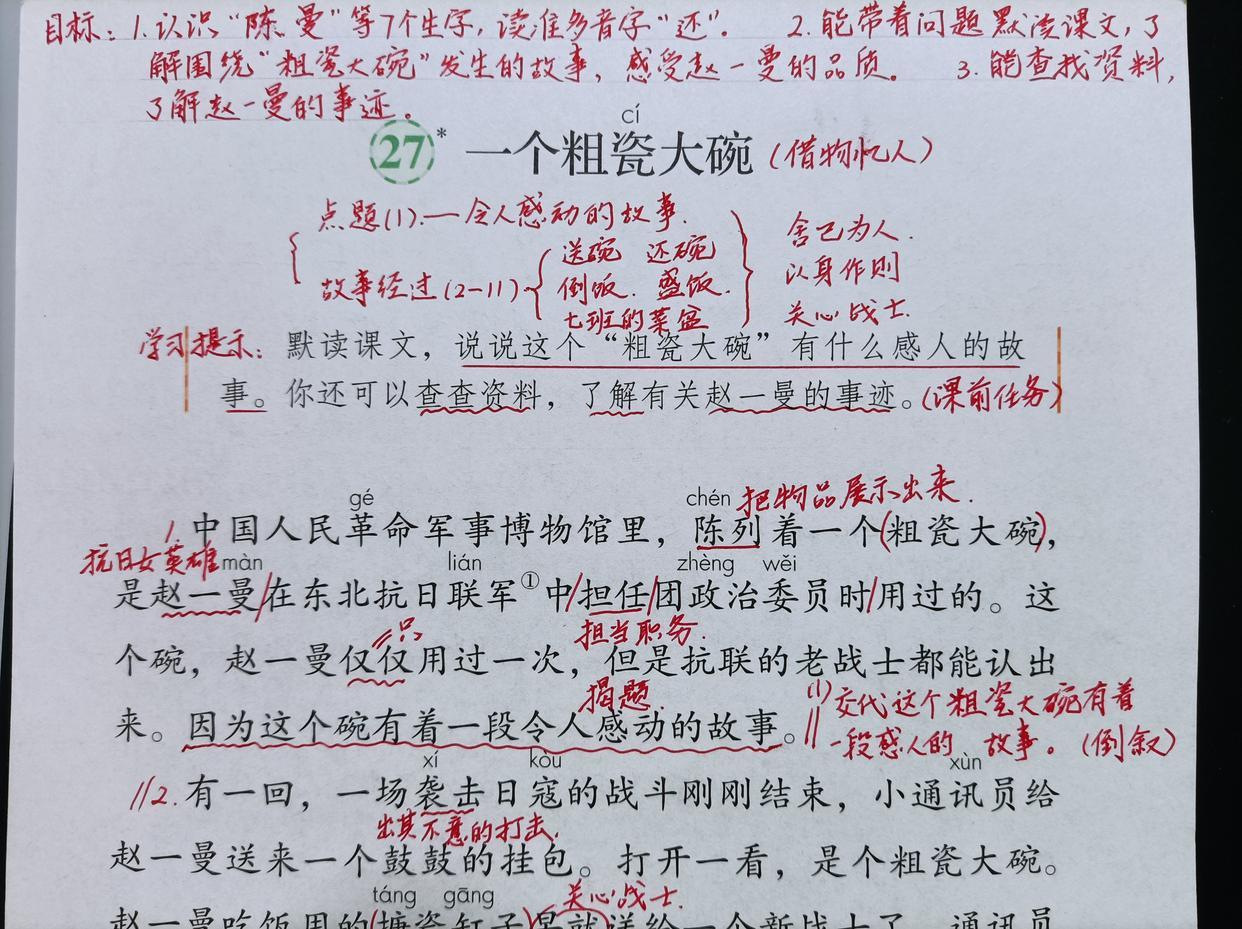 目标：1.认识“陈、曼”等7个生字，读准多音字“还”。 2.能带着问题默读课文，了
解围绕“粗瓷大碗”发生的故事，感受赵一曼的品质。 3.能查找资料，
了解赵一曼的事迹。
cí
27* 一个粗瓷大碗（借物忆人）
点题(1).—令人感动的故事.
故事经过(2-11)
送碗 还碗
倒饭. 盛饭.
七班的菜盆
舍己为人.
以身作则
关心战士.
学习提示：默读课文，说说这个“粗瓷大碗”有什么感人的故
事。你还可以查查资料，了解有关赵一曼的事迹。（课前任务）
gé chén 把物品展示出来.
1.中国人民革命军事博物馆里，陈列着一个(粗瓷大碗)，
抗日女英雄 màn lián zhèng wěi
是赵一曼/在东北抗日联军①中/担任/团政治委员时/用过的。这
只 担当职务.
个碗，赵一曼仅仅用过一次，但是抗联的老战士都能认出
揭题.
来。因为这个碗有着一段令人感动的故事。//
(1)交代这个粗瓷大碗有着
一段感人的 故事。（倒叙）
xí kòu xùn
//2.有一回，一场袭击日寇的战斗刚刚结束，小通讯员给
出其不意的打击.
赵一曼送来一个鼓鼓的挂包。打开一看，是个粗瓷大碗。
táng gāng 关心战士.
赵一曼吃饭用的(搪瓷缸子)早就送给一个新战士了，通讯员